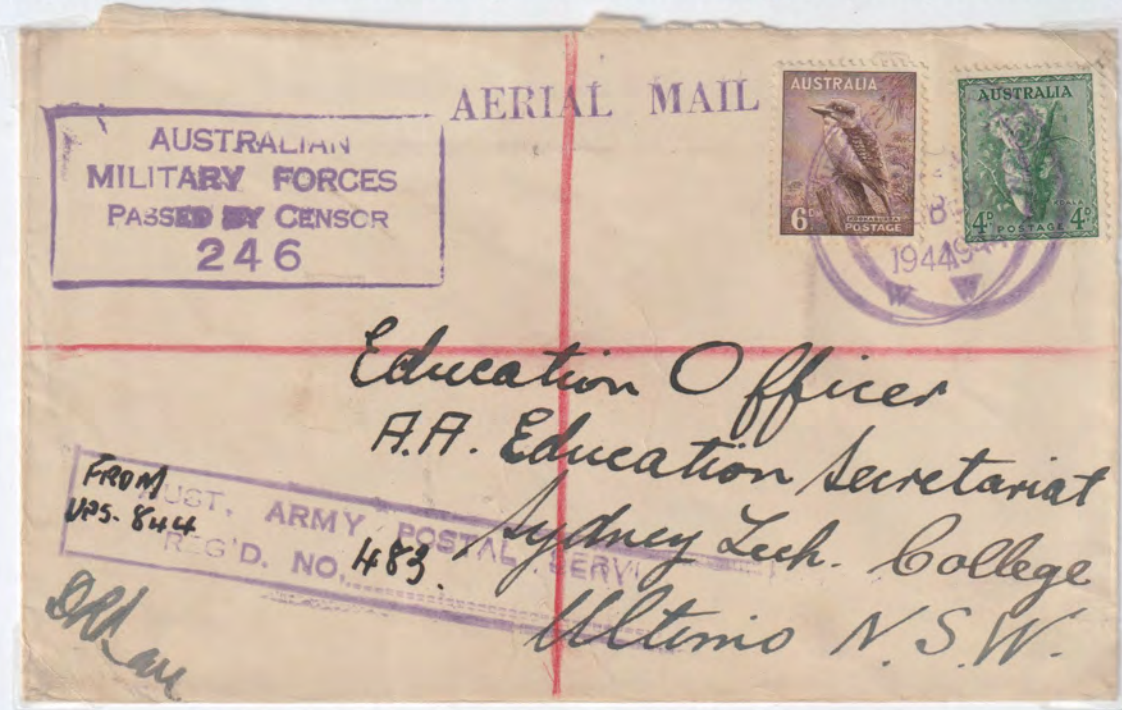 AERIAL MAIL
AUSTRALIAN
MILITARY FORCES
PASSED BY CENSOR
246
AUSTRALIA
6D
KOOKABURRA
POSTAGE
AUSTRALIA
KOALA
4D POSTAGE 4D
1944 194
W W
Education Officer
A.A. Education Secretariat
Sydney Tech. College
Ultimo N.S.W.
FROM
UPS. 844
AUST. ARMY POSTAL SERVI
REG'D. NO. 483.